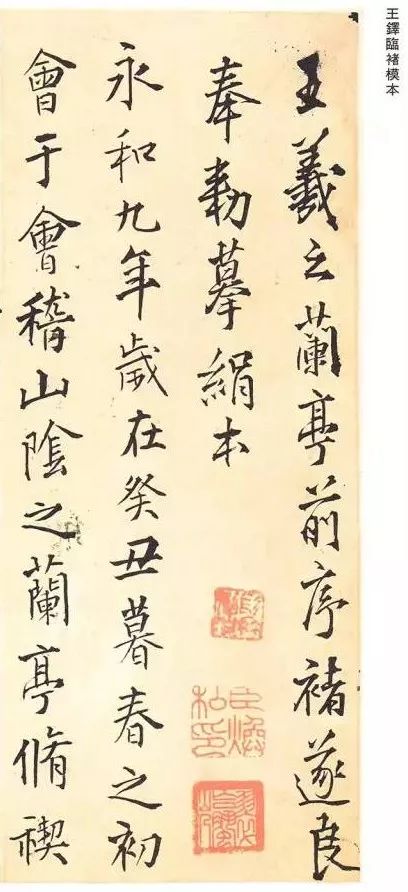 王鐸臨褚模本
王羲之蘭亭前序褚遂良
奉勅摹絹本
永和九年歲在癸丑暮春之初
會于會稽山陰之蘭亭脩禊